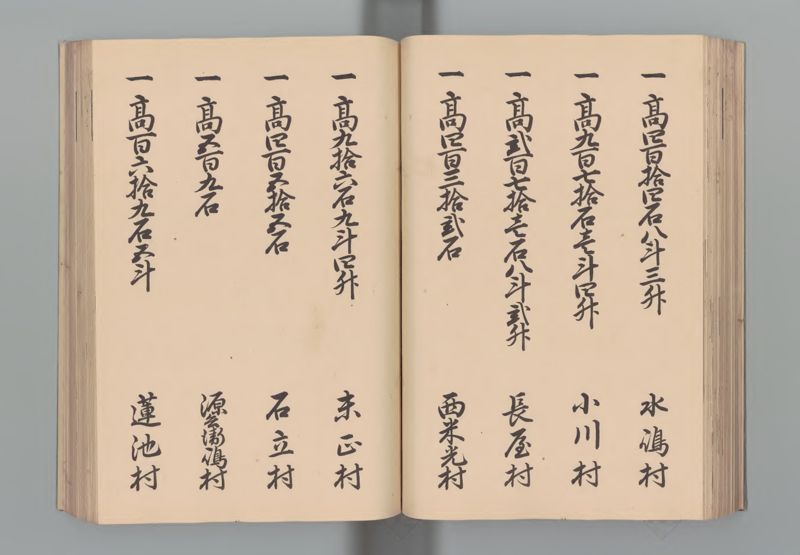 一高四百拾四石八斗三升 水嶋村
一高九百七拾石壱斗四升 小川村
一高弐百七拾壱石八斗弐升 長屋村
一高四百三拾弐石 西米光村
一高九拾六石九斗四升 末正村
一高四百五拾五石 石立村
一高五百九石 源兵衛嶋村
一高百六拾九石五斗 蓮池村